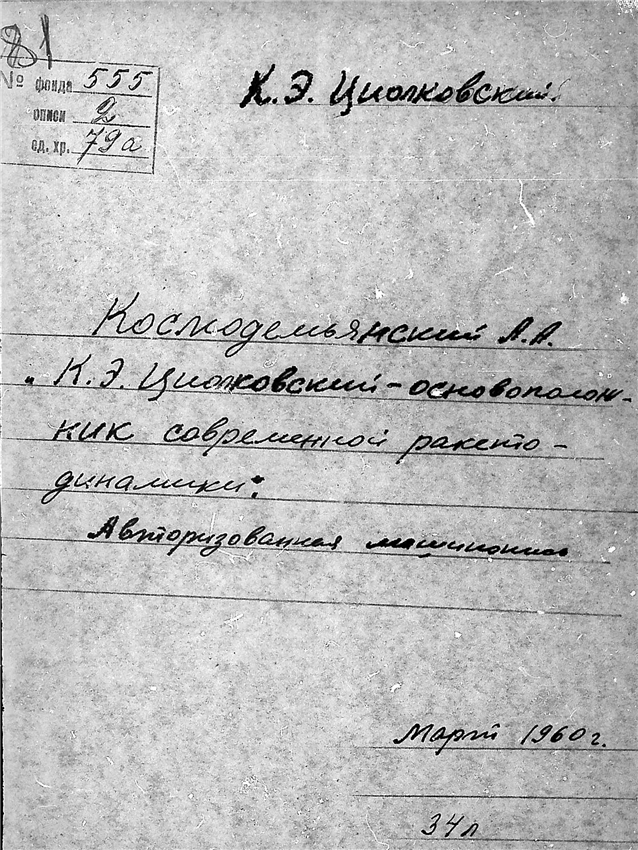 81
№ фонда 555
описи 2
ед. хр. 79а
К. Э. Циолковский.
Космодемьянский А. А.
„К. Э. Циолковский – основополож-
ник современной ракето-
динамики".
Авторизованная машинопись
Март 1960 г.
34 л